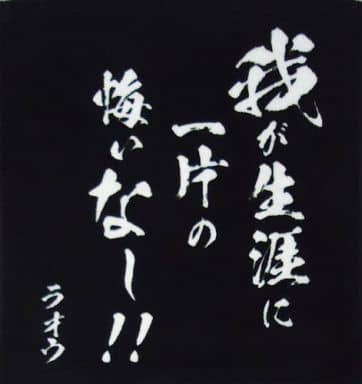 我が生涯に
一片の
悔いなし!!
ラオウ